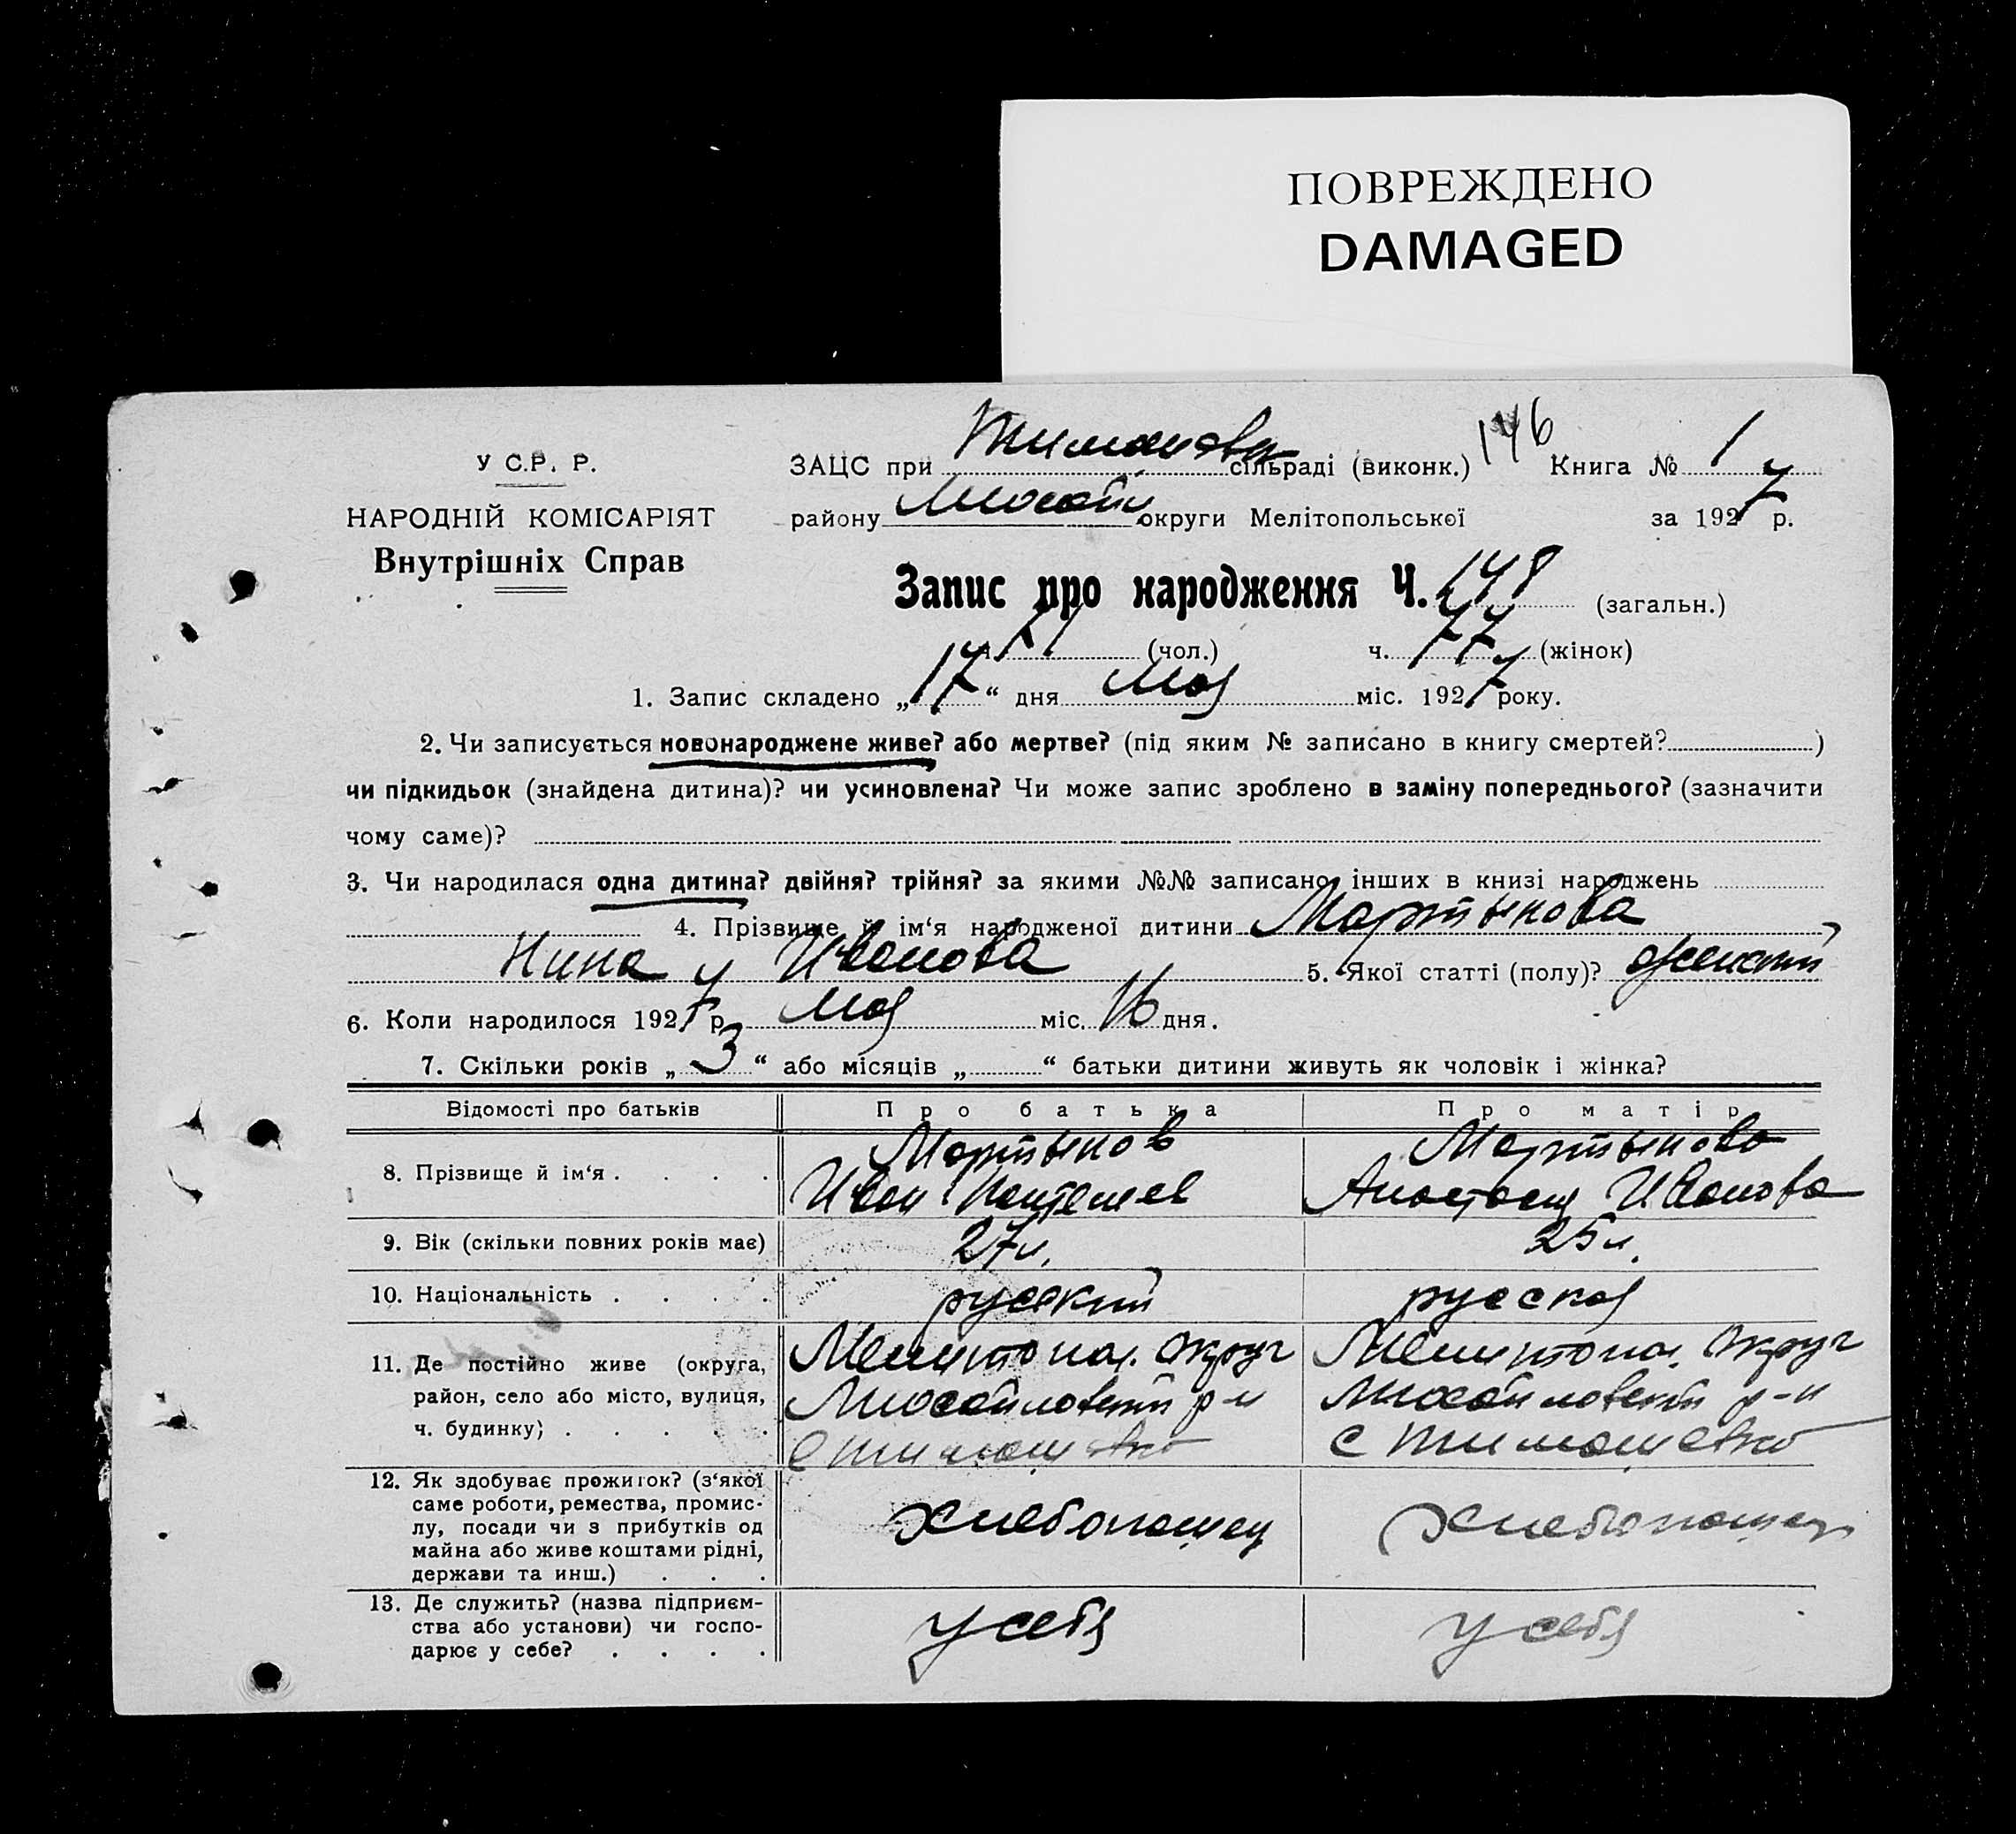 ПОВРЕЖДЕНО
DAMAGED
У С.Р. Р.
НАРОДНІЙ КОМІСАРІЯТ
Внутрішніх Справ
ЗАЦС при Тимошовк сільраді (виконк.) 146 Книга № 1
району Михайл округи Мелітопольської за 1927 р.
Запис про народження Ч. 148 (загальн.)
ч. 71 (чол.) ч. 77 (жінок)
1. Запис складено „17“ дня Мая міс. 1927 року.
2. Чи записується новонароджене живе? або мертве? (під яким № записано в книгу смертей? )
чи підкидьок (знайдена дитина)? чи усиновлена? Чи може запис зроблено в заміну попереднього? (зазначити
чому саме)?
3. Чи народилася одна дитина? двійня? трійня? за якими №№ записано інших в книзі народжень
4. Прізвище й ім‘я народженої дитини Мартынова
Нина Иванова 5. Якої статті (полу)? женский
6. Коли народилося 1927 р. Мая міс. 16 дня.
7. Скільки років „3“ або місяців „ “ батьки дитини живуть як чоловік і жінка?
Відомості про батьків Про батька Про матір
8. Прізвище й ім‘я . . . . Мартынов Мартынова
Иван Анастасия Иванова
9. Вік (скільки повних років має) 27 л. 25 л.
10. Національність . . . . русский русская
11. Де постійно живе (округа, Мелитопол. Округ Мелитопол. Округ
район, село або місто, вулиця, Михайловский р-н Михайловский р-н
ч. будинку) . . . . . с Тимошовка с Тимошовка
12. Як здобуває прожиток? (з‘якої
саме роботи, ремества, промис-
лу, посади чи з прибутків од Хлебопашец Хлебопашец
майна або живе коштами рідні,
держави та инш.) . . .
13. Де служить? (назва підприєм-
ства або установи) чи госпо- у себя у себя
дарює у себе? . . . .